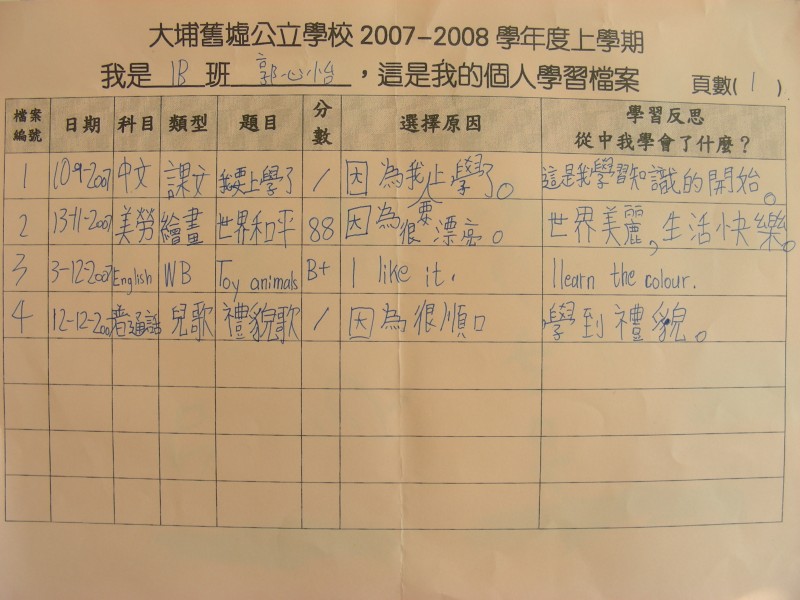 大埔舊墟公立學校 2007-2008 學年度上學期
我是 1B 班 郭心怡 ，這是我的個人學習檔案 頁數( 1 )
檔案編號 日期 科目 類型 題目 分數 選擇原因 學習反思 從中我學會了什麼？
1 10-9-2007 中文 課文 我要上學了 / 因為我要上學了。 這是我學習知識的開始。
2 13-11-2007 美勞 繪畫 世界和平 88 因為很漂亮。 世界美麗，生活快樂。
3 3-12-2007 English WB Toy animals B+ I like it. I learn the colour.
4 12-12-2007 普通話 兒歌 禮貌歌 / 因為很順口 學到禮貌。